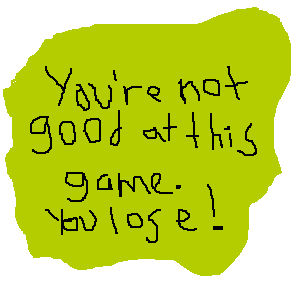 You're not
good at this
game.
You lose!